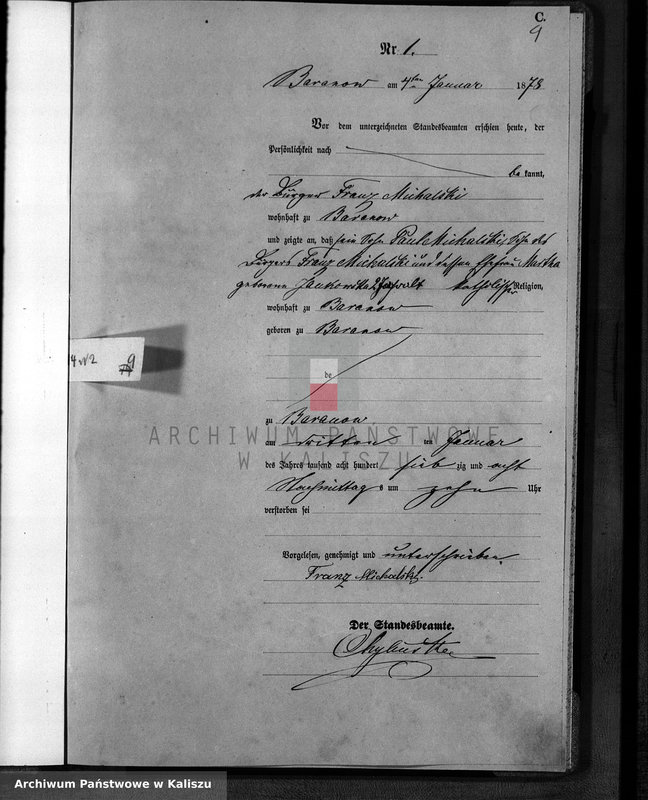 C.
9
Nr 1.
Baranow am 4ten Januar 1878
Vor dem unterzeichneten Standesbeamten erschien heute, der
Persönlichkeit nach
be kannt,
der Bürger Franz Michalski
wohnhaft zu Baranow
und zeigte an, daß sein Sohn Paul Michalski, Sohn des
Bürgers Franz Michalski und dessen Ehefrau Martha
geborene Jankowska alt katholischer Religion,
wohnhaft zu Baranow
geboren zu Baranow
4 N2 9
de
zu Baranow
ARCHIWUM PAŃSTWOWE
W KALISZU
am dritten ten Januar
des Jahres tausend acht hundert sieb zig und acht
Nachmittag s um zehn Uhr
verstorben sei
Vorgelesen, genehmigt und unterschrieben.
Franz Michalski.
Der Standesbeamte.
Archiwum Państwowe w Kaliszu